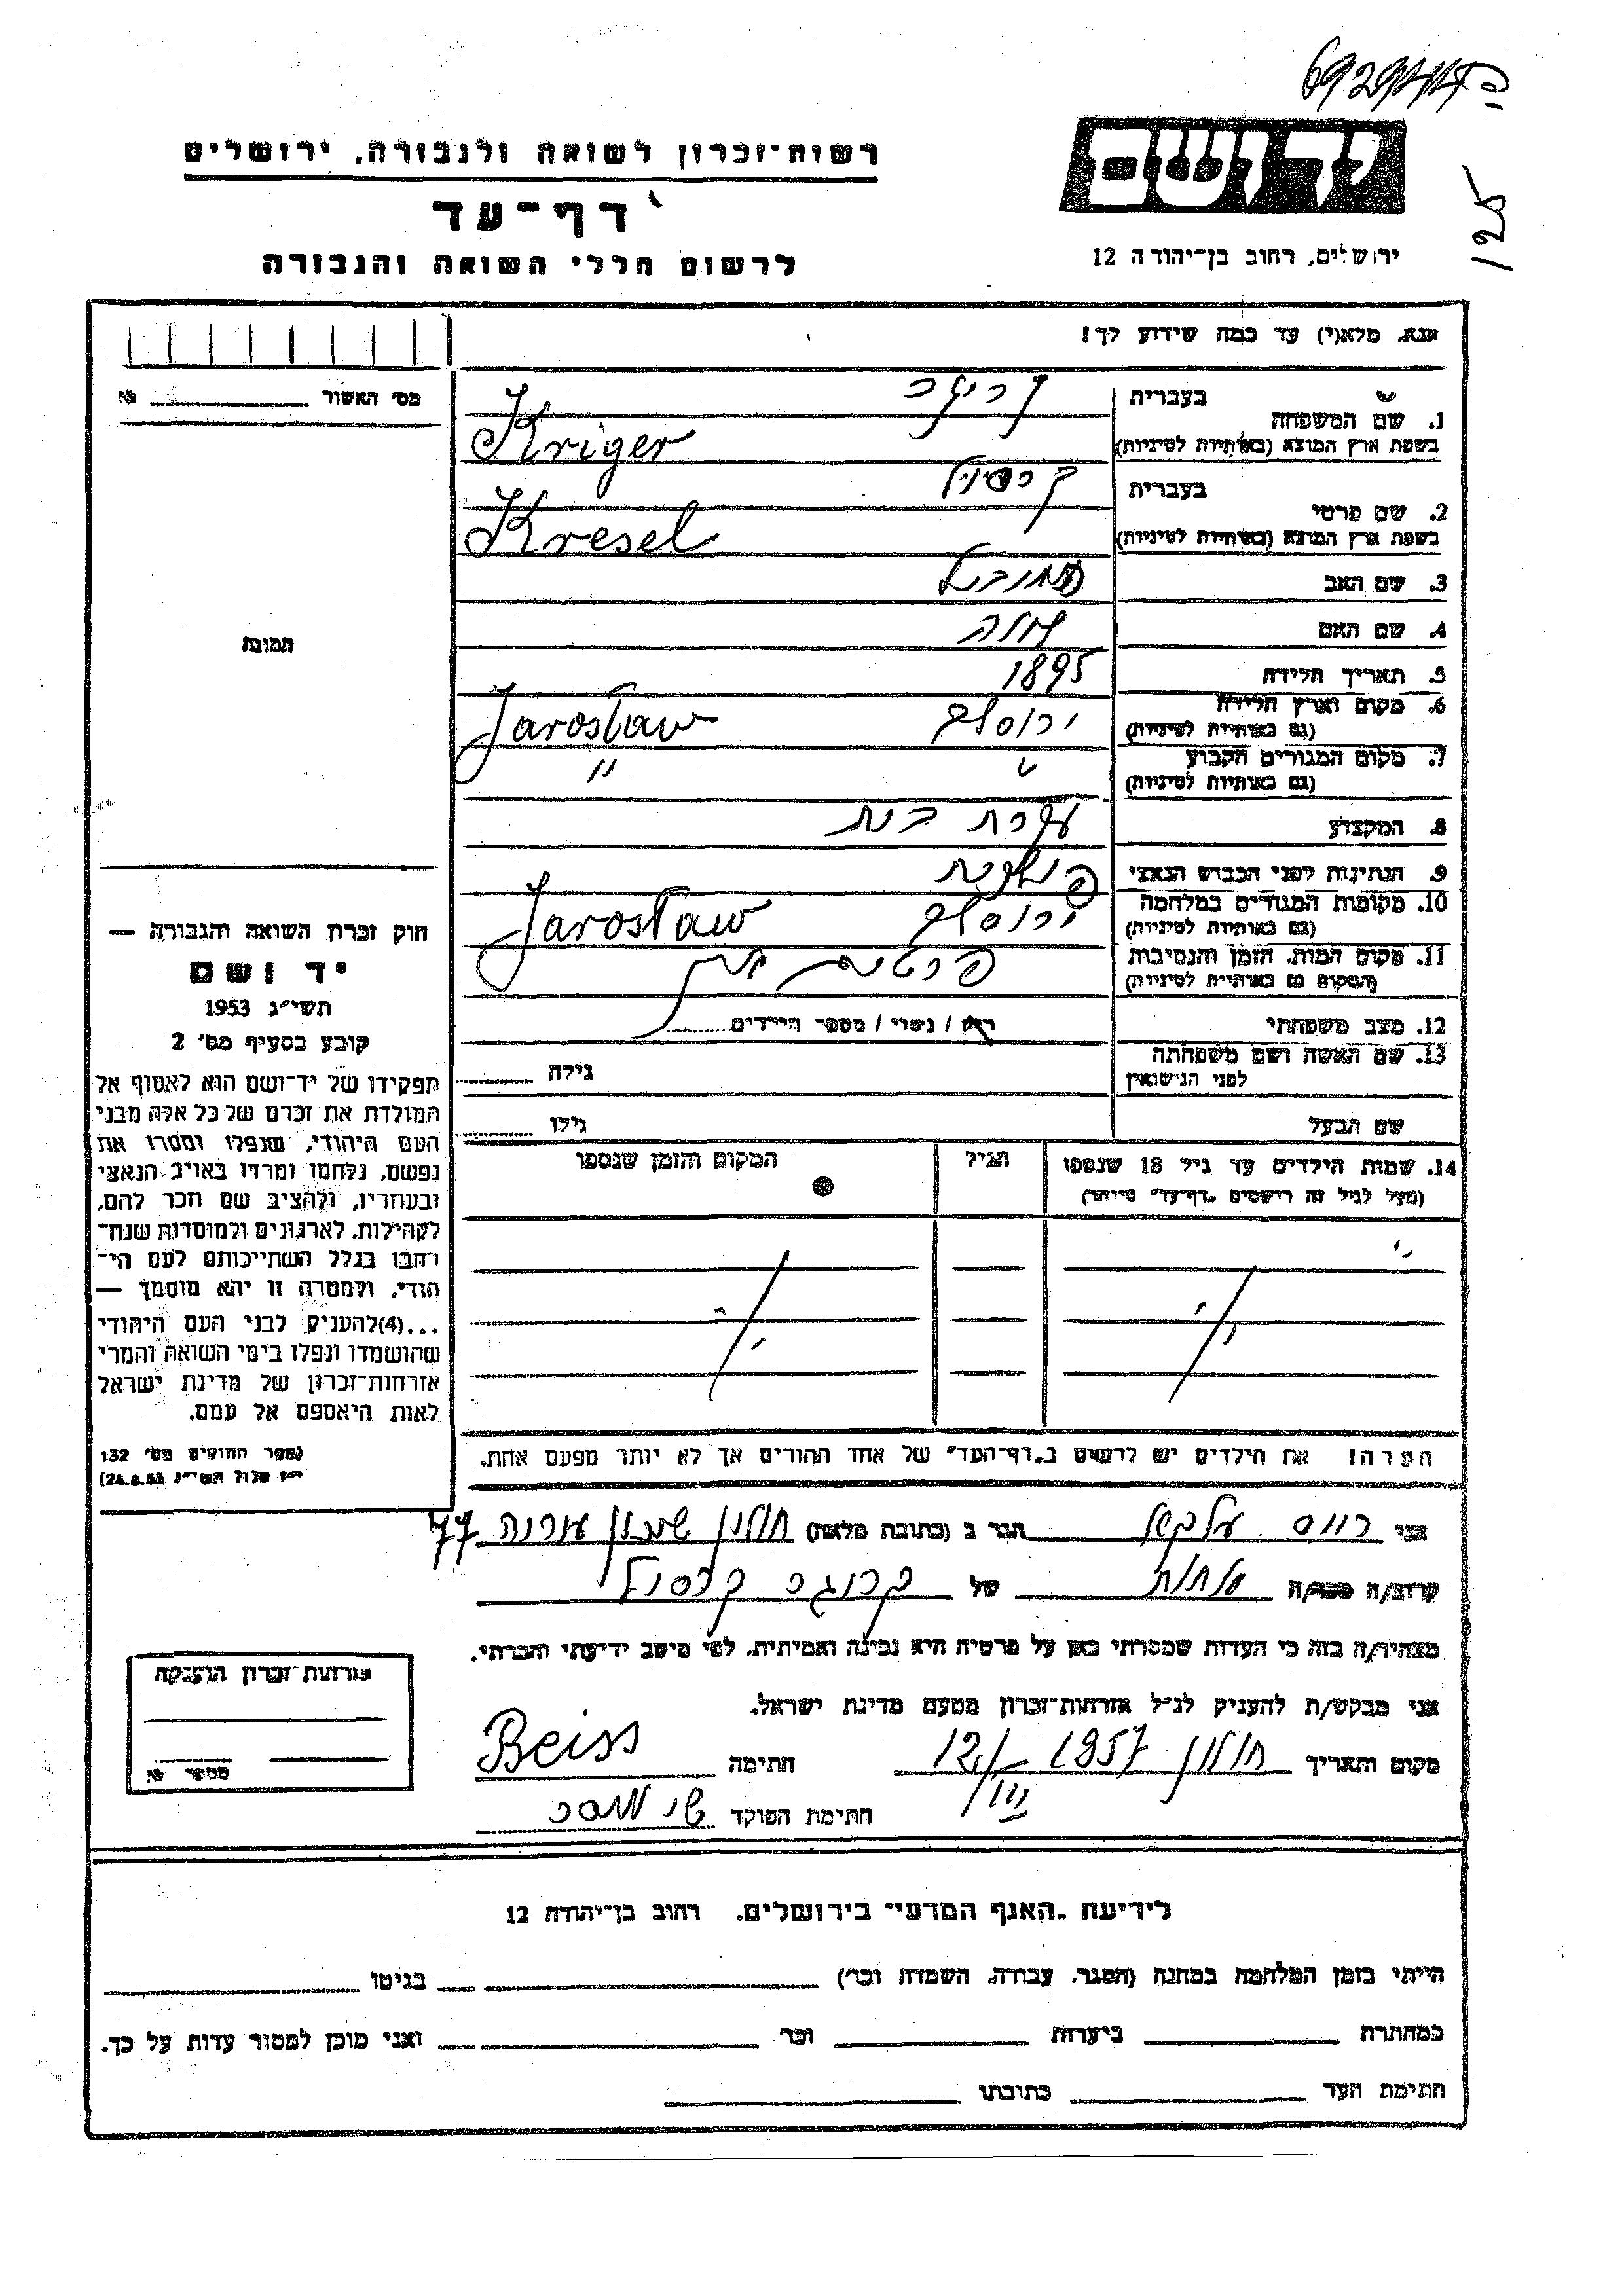 ידושם
ירושלים, רחוב בן־יהודה 12
125
רשות־זכרון לשואה ולגבורה, ירושלים
דף־עד
לרשום חללי השואה והגבורה
אנא, מלא(י) עד כמה שידוע לך!
מס׳ האשור № 
1. שם המשפחה
בעברית קריגר
בשפת ארץ המוצא (באותיות לטיניות) Kriger
2. שם פרטי
בעברית
בשפת ארץ המוצא (באותיות לטיניות) Kresel
3. שם האב
4. שם האם
5. תאריך הלידה 1895
6. מקום וארץ הלידה (גם באותיות לטיניות) ירוסלב Jarosław
7. מקום המגורים הקבוע (גם באותיות לטיניות) " "
8. המקצוע עקרת בית
9. הנתינות לפני הכבוש הנאצי פולנית
10. מקומות המגורים במלחמה (גם באותיות לטיניות) ירוסלב Jarosław
11. מקום המות, הזמן והנסיבות (המקום גם באותיות לטיניות)
12. מצב משפחתי רווק / נשוי / מספר הילדים
13. שם האשה ושם משפחתה לפני הנישואין גילה
שם הבעל גילו
14. שמות הילדים עד גיל 18 שנספו
(מעל לגיל זה רושמים "דף־עד" מיוחד)
הגיל
המקום והזמן שנספו
הערה: את הילדים יש לרשום ב"דף־העד" של אחד ההורים אך לא יותר מפעם אחת.
תמונה
חוק זכרון השואה והגבורה —
יד ושם
תשי״ג 1953
קובע בסעיף מס׳ 2
תפקידו של יד־ושם הוא לאסוף אל
המולדת את זכרם של כל אלה מבני
העם היהודי, שנפלו ומסרו את
נפשם, נלחמו ומרדו באויב הנאצי
ובעוזריו, ולהציב שם וזכר להם,
לקהילות, לארגונים ולמוסדות שנח־
רבו בגלל השתייכותם לעם הי־
הודי, ולמטרה זו יהא מוסמך —
...(4)להעניק לבני העם היהודי
שהושמדו ונפלו בימי השואה והמרי
אזרחות־זכרון של מדינת ישראל
לאות היאספם אל עמם.
(ספר החוקים מס׳ 132
י״ז אלול תשי״ג 28.8.53)
אני הגר ב (כתובת מלאה) חולון 77
קרוב/ה מכר/ה של
מצהיר/ה בזה כי העדות שמסרתי כאן על פרטיה היא נכונה ואמיתית, לפי מיטב ידיעתי והכרתי.
אני מבקש/ת להעניק לנ״ל אזרחות־זכרון מטעם מדינת ישראל.
מקום ותאריך חולון 1957 12/ חתימה Beiss
חתימת הפוקד
אזרחות־זכרון הוענקה
מספר №
לידיעת "האגף המדעי" בירושלים, רחוב בן־יהודה 12
הייתי בזמן המלחמה במחנה (הסגר, עבודה, השמדה וכו׳) בגיטו
במחתרת ביערות וכו׳ ואני מוכן למסור עדות על כך.
חתימת העד כתובתו